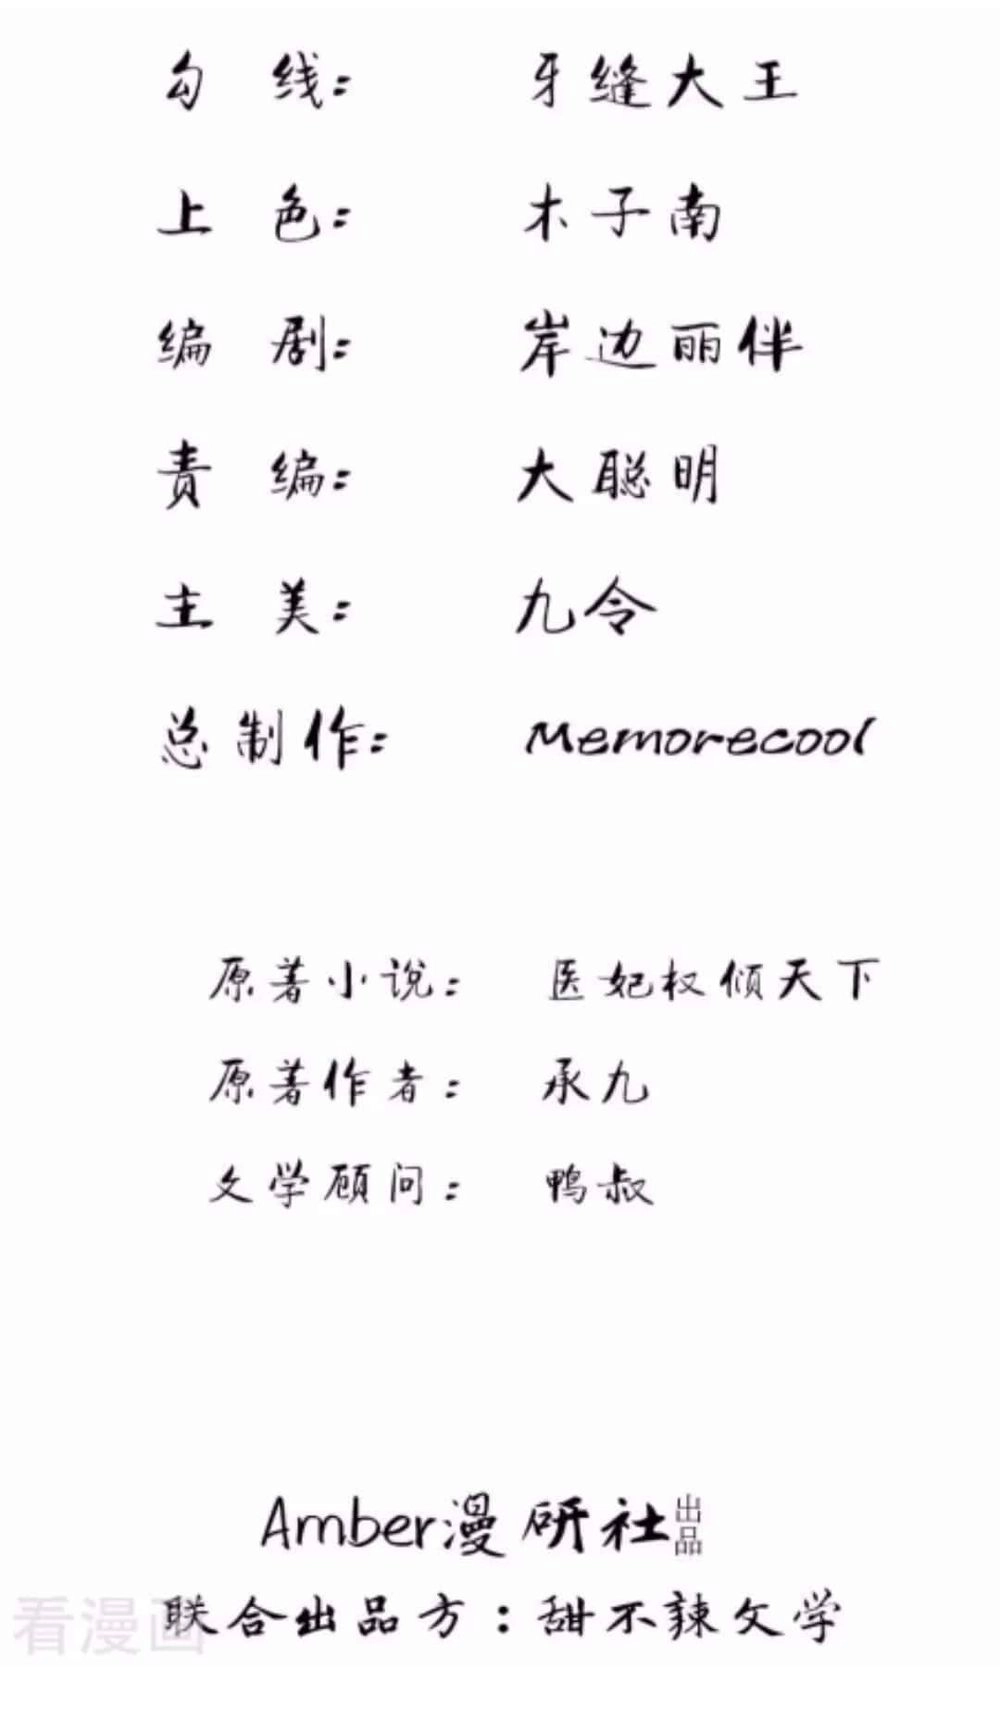 勾 线: 牙缝大王
上 色: 木子南
编 剧: 岸边丽伴
责 编: 大聪明
主 美: 九令
总制作: Memorecool
原著小说: 医妃权倾天下
原著作者: 承九
文学顾问: 鸭叔
Amber漫研社出品
联合出品方:甜不辣文学
看漫画